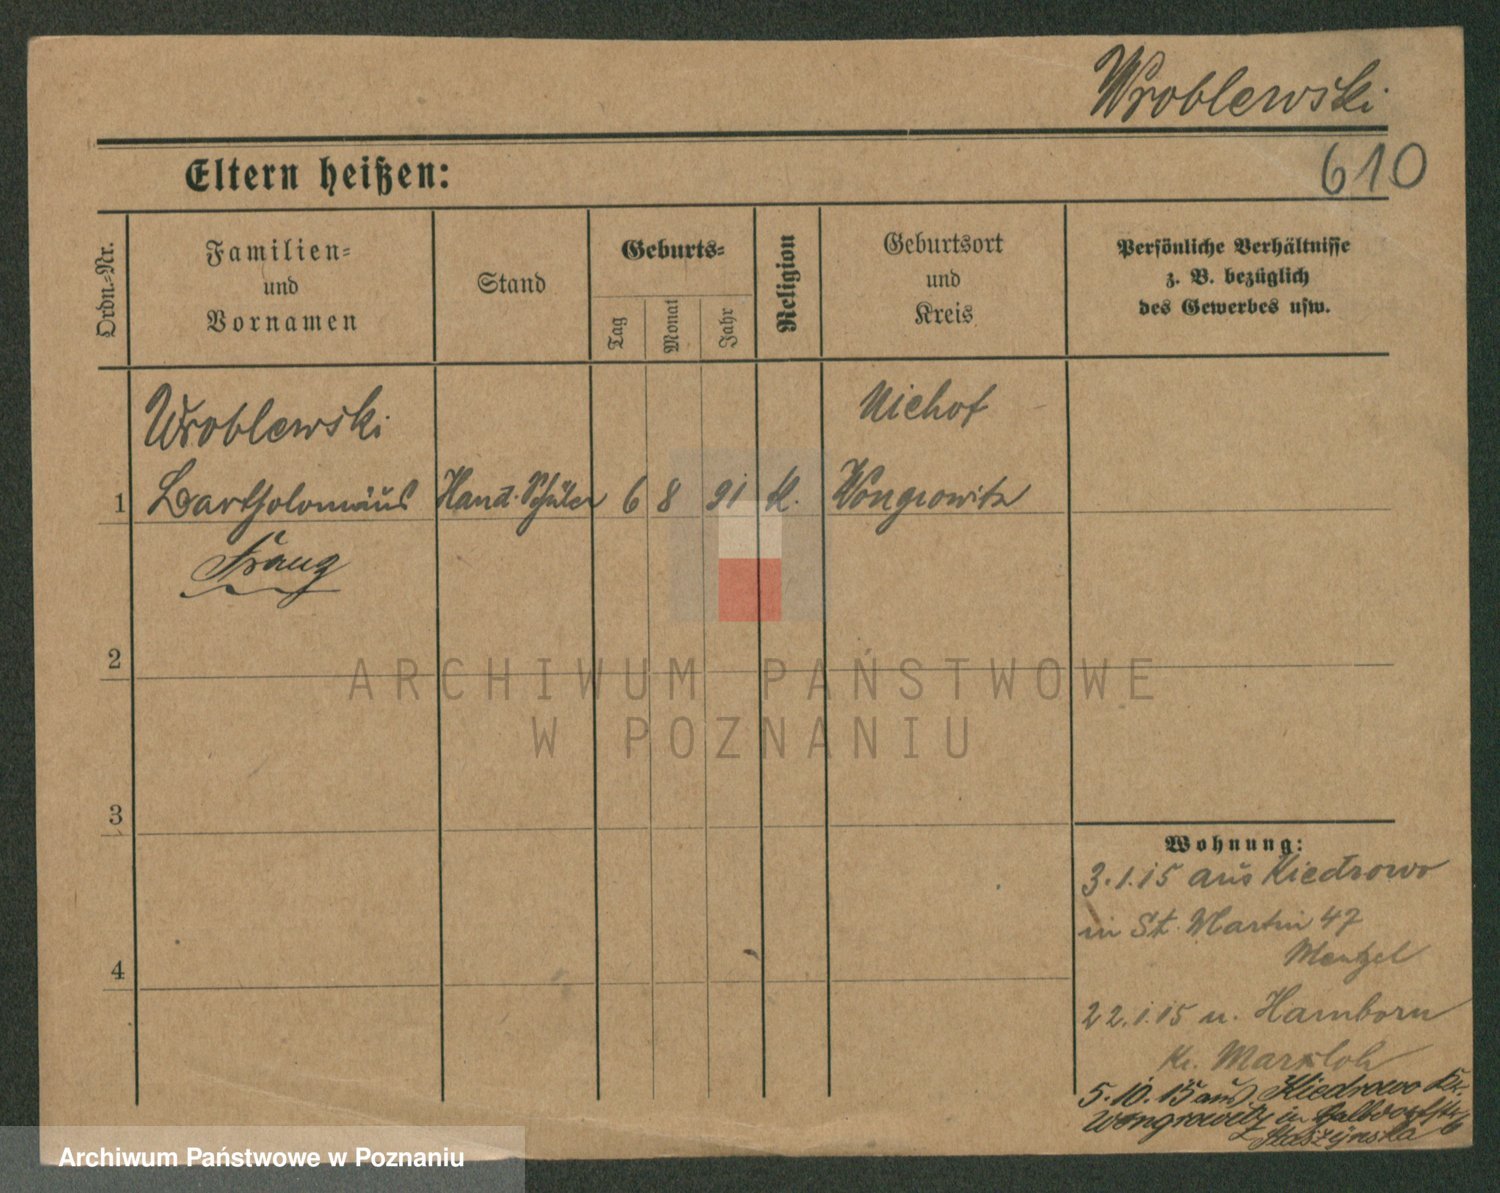 Wroblewski
610
Eltern heißen:
Ordn.-Nr.
Familien-
und
Vornamen
Stand
Geburts-
Tag
Monat
Jahr
Religion
Geburtsort
und
Kreis
Persönliche Verhältnisse
z. B. bezüglich
des Gewerbes usw.
Wroblewski
Niehof
1 Bartholomäus Hand. Schüler 6 8 91 K. Wongrowitz
Franz
2
ARCHIWUM PAŃSTWOWE
W POZNANIU
3
Wohnung:
3.1.15 aus Kiedrowo
in St. Martin 47
Menzel
4
22.1.15 n. Hamborn
Kr. Marxloh
5.10.15 aus Kiedrowo Kr.
Wongrowitz in
Archiwum Państwowe w Poznaniu